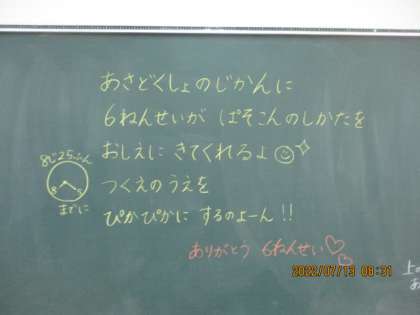 あさどくしょのじかんに
6ねんせいが ぱそこんのしかたを
おしえに きてくれるよ
8じ25ふん
8 5
までに
つくえのうえを
ぴかぴかに するのよーん!!
ありがとう 6ねんせい
2022/07/13 08:31
上の